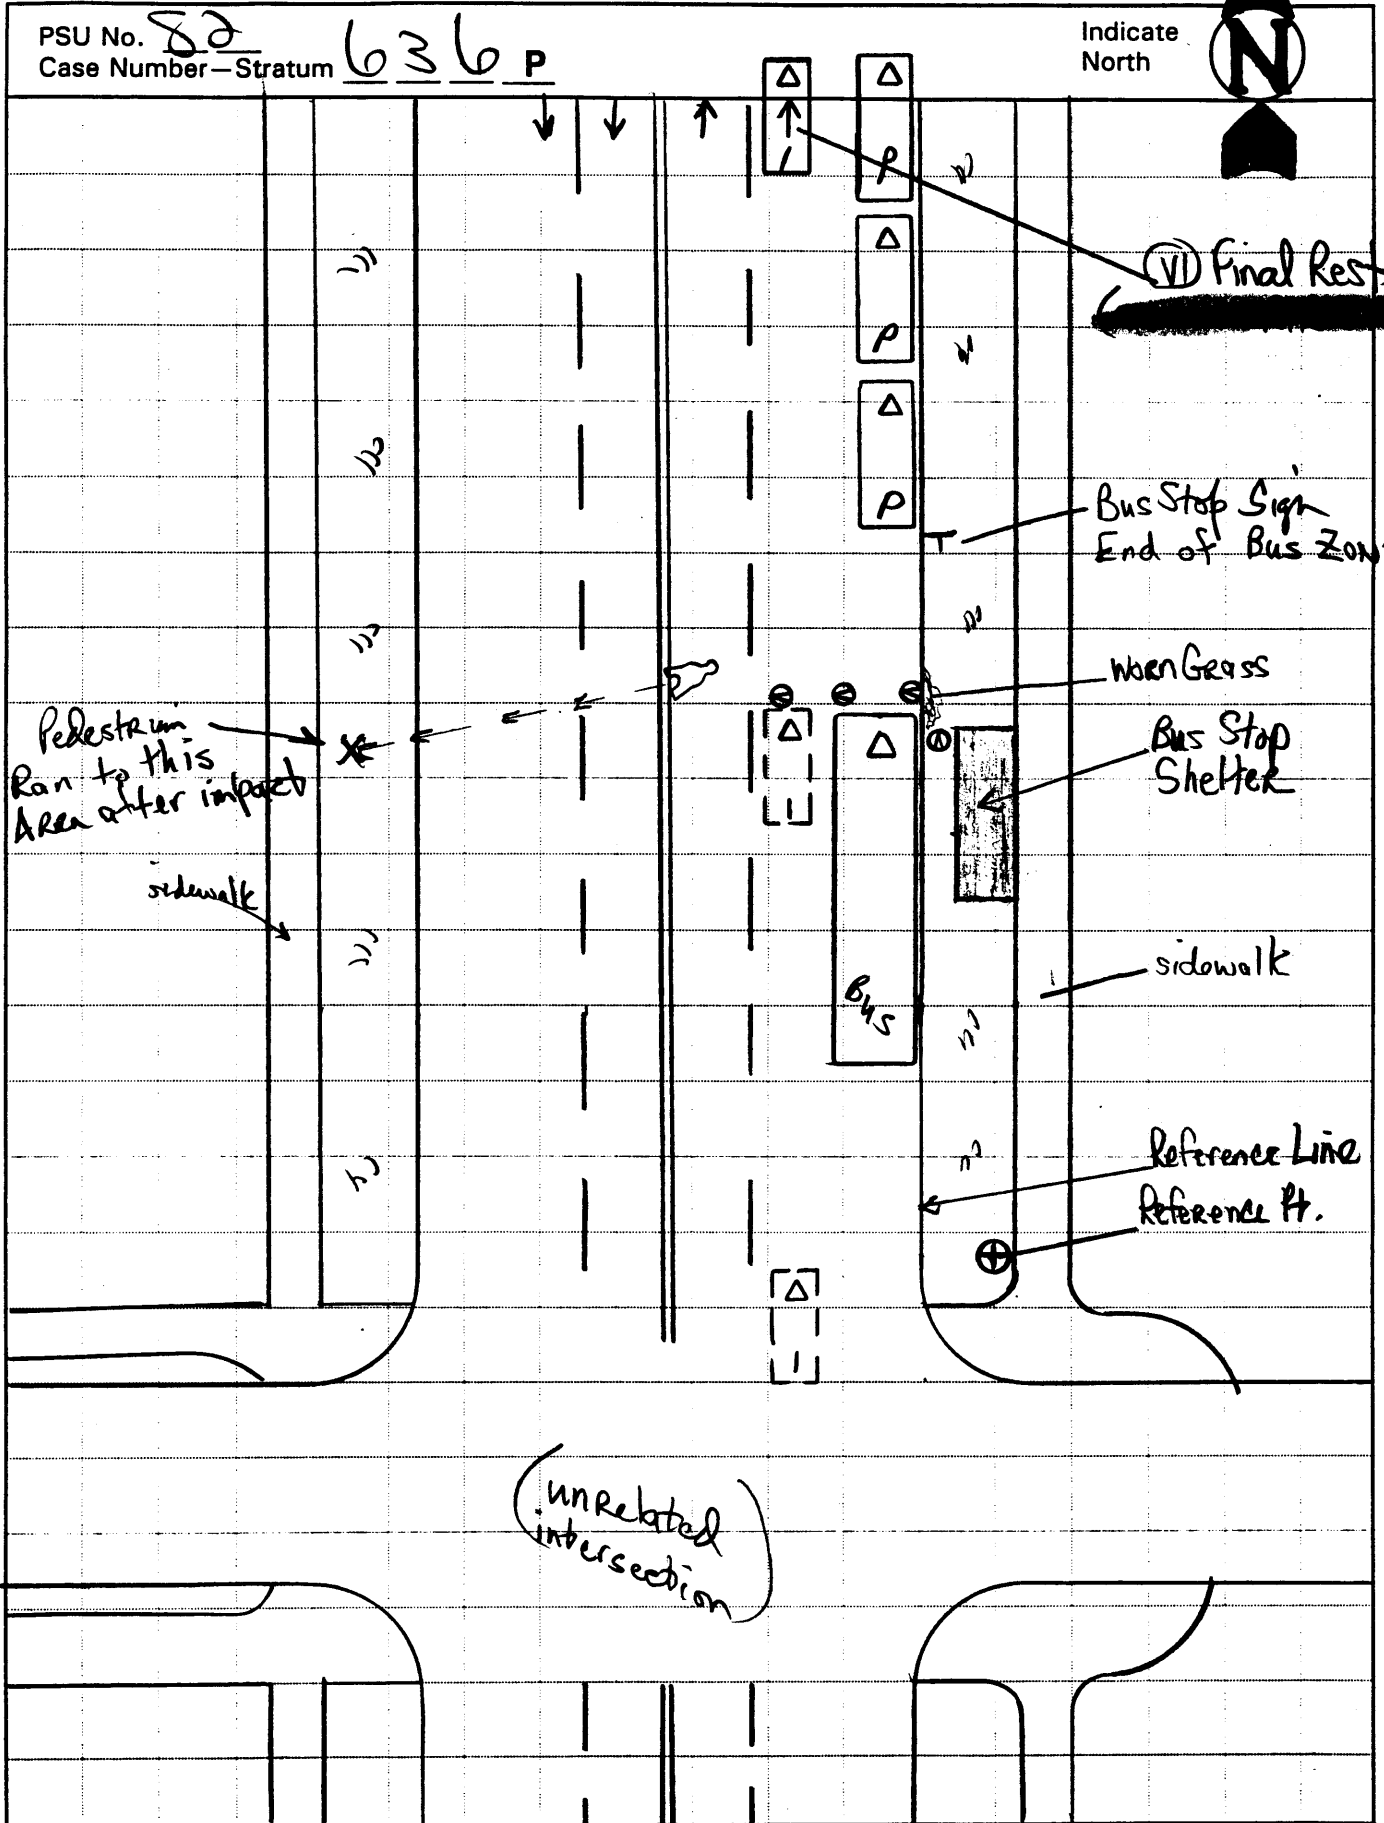 PSU No. 82
Case Number—Stratum 636 P
Indicate
North
N
1
P
V1 Final Rest
P
P
Bus Stop Sign
End of Bus Zon
Worn Grass
Bus Stop
Shelter
Pedestrian
Ran to this
Area after impact
X
1
sidewalk
Bus
sidewalk
Reference Line
Reference Pt.
1
(unRelated
intersection)